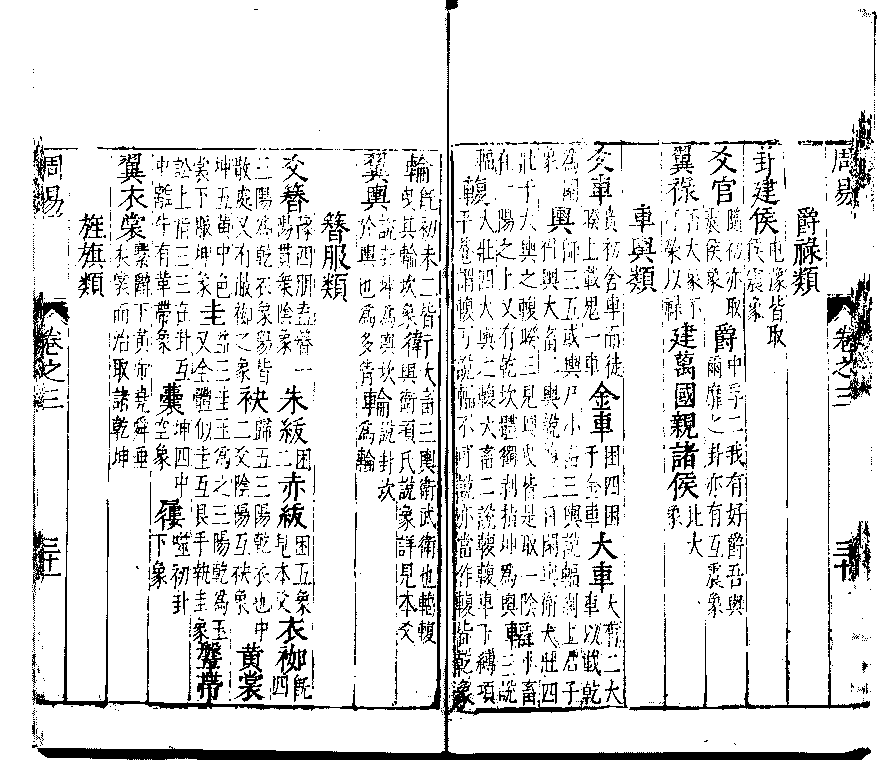 周易 卷之三 三十
爵祿類
卦建侯 屯豫皆取侯震象
爻官 隨初亦取震侯象 爵 中孚二我有好爵吾與爾靡之卦亦有互震象
翼祿 否大象不可榮以祿 建萬國親諸侯 比大象
車輿類
爻車 賁初舍車而徒睽上載鬼一車 金車 困四困于金車 大車 大有二大車以載乾
為圜象 輿 師三五或輿尸小畜三輿說輻剝上君子得輿大畜二輿說輹三曰閑輿衛大壯四
壯于大輿之輹睽三見輿曳皆是取一陰在一陽之上又有乾坎體獨剝指坤為輿 輻 小畜三說
輻 輹 大壯四大輿之輹大畜二說輹輹車下縛項平菴謂輹可說輻不可說亦當作輹皆乾象
輪 既初未二皆曳其輪坎象 衛 大畜三輿衛武衛也 輹輿衛項氏說象詳見本爻
翼輿 說卦坤為輿坎於輿也為多眚 輪 說卦坎為輪
簪服類
爻簪 豫四朋盍簪一陽貫衆陰象 朱紱 困二 赤紱 困五象見本爻 衣袽 既四
三陽為乾衣象爻皆散處又有敝袽之象 袂 歸五三陽乾衣也中二爻陰陽互袂象 黃裳
坤五黃中色裳下服坤象 圭 益三圭玉為之三陽乾為玉又全體似圭互艮手執圭象 鞶帶
訟上 三三在卦互中離牛有革帶象 囊 坤四中空象 屨 噬初卦下象
翼衣裳 繫辭下黃帝堯舜垂衣裳而治取諸乾坤
旌旗類
周易 卷之三 三十一